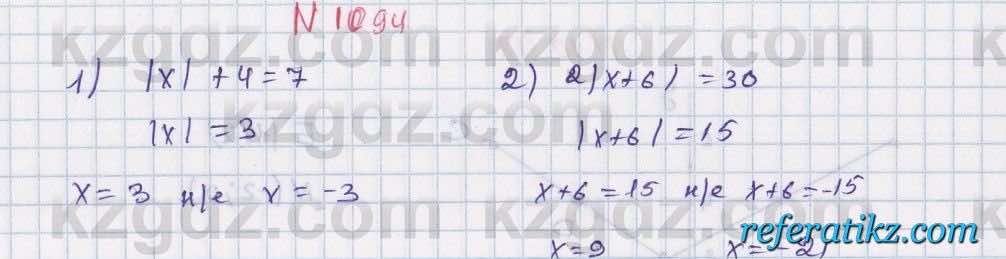 N 1094
kzgdz.com
1) |x| + 4 = 7
2) 2|x+6| = 30
|x| = 3
|x+6| = 15
x = 3 н/е x = -3
x+6 = 15 н/е x+6 = -15
x = 9
x = -21
referatikz.com